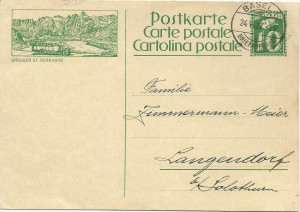 Postkarte
Carte postale
Cartolina postale
BASEL
24.
10
GROSSER ST. BERNHARD
Familie
Zimmermann-Meier
Langendorf
b/ Solothurn